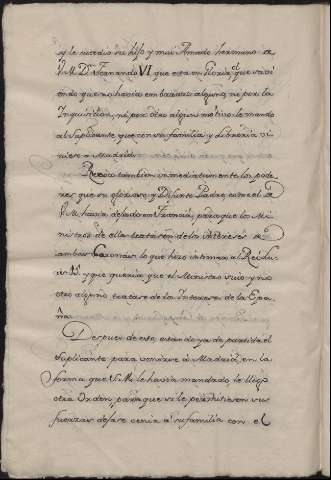 y le sucedio su hijo y mui Amado hermano de
V.M. Dn. Fernando VI que esta en Gloria, que
endo que no havia embarazo alguno, ni por la
Inquisicion, ni por otro algun motivo le mando
al Suplicante que con su familia y Libreria vi
niese a Madrid.
Recoxio tambien inmediatamente los pode
res que su glorioso y Difunto Padre, sobre el de
V.M. havia dejado en Francia, para que los Mi
nistros de ella tratasen de los intereses de
ambas Coronas, lo que hizo intimar al Rei Lu
is XV. y que queria que el Ministro suio y no
otro alguno tratase de los Intereses de la Espa
ña.
Despues de esto estando ya de partida el
Suplicante para venirse a Madrid, en la
forma que S.M. le havia mandado, le llegó
otra Orden, para que si le permitiesen sus
fuerzas dejase venir a su familia con el